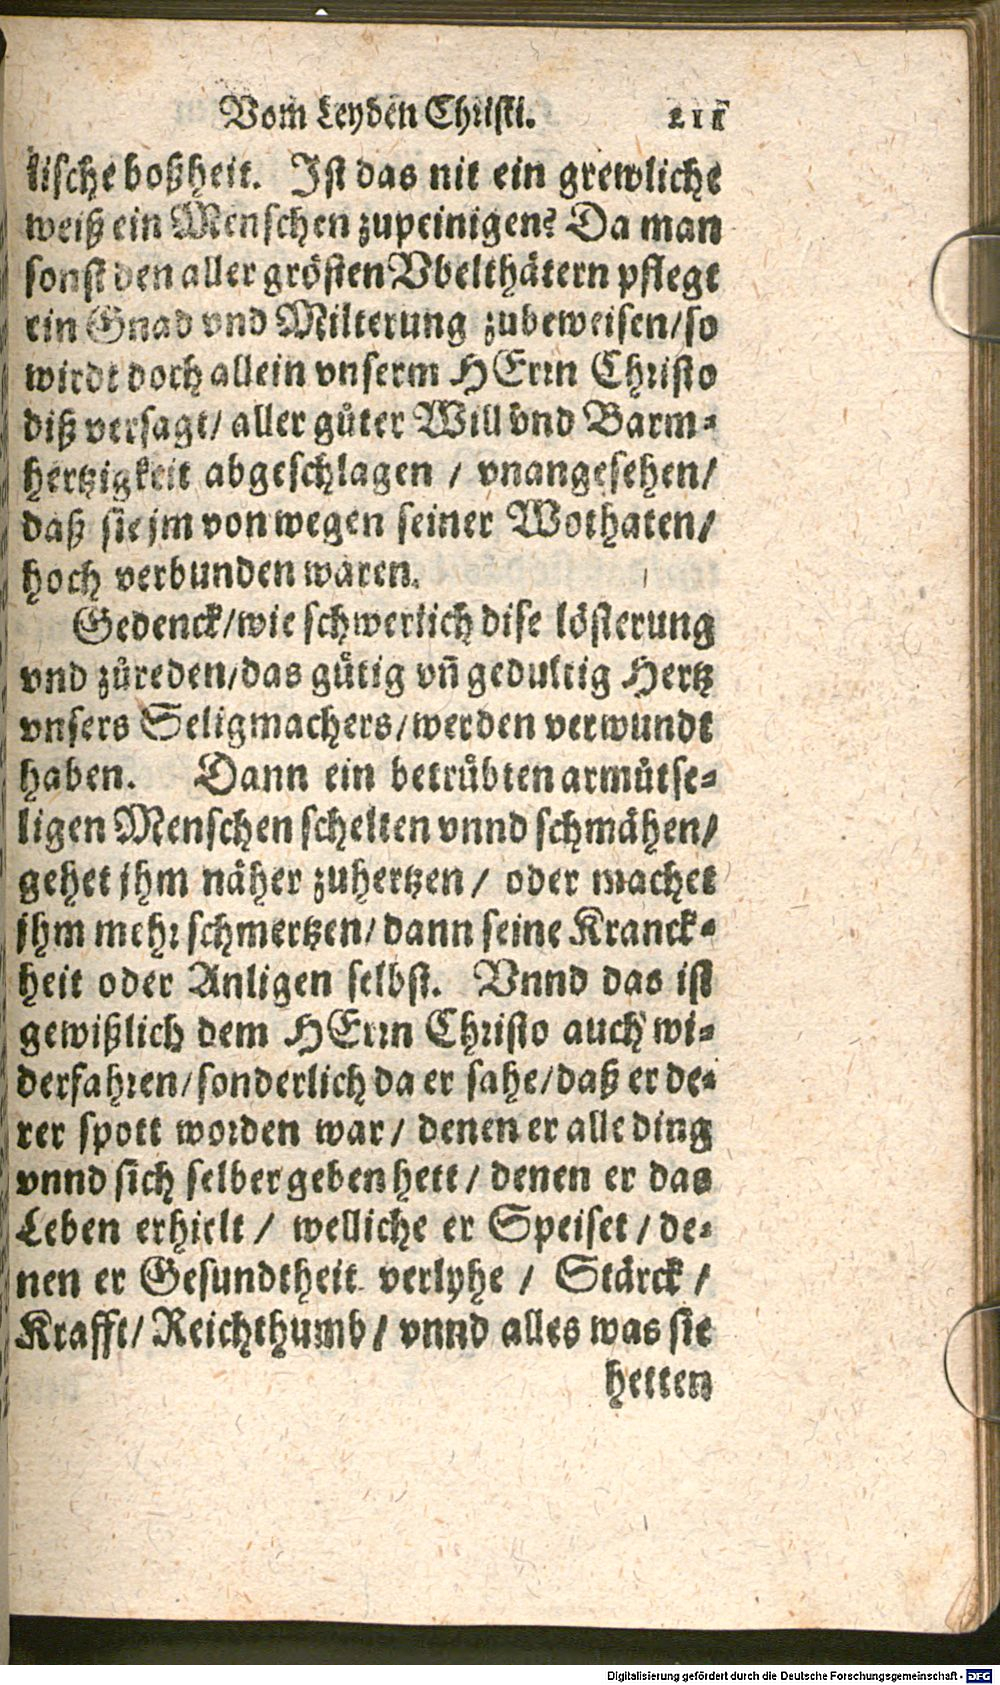 Vom Leyden Christi. 211
lische boßheit. Ist das nit ein grewliche
weiß ein Menschen zupeinigen? Da man
sonst den aller grösten Vbelthätern pflegt
ein Gnad vnd Milterung zubeweisen/so
wirdt doch allein vnserm HErrn Christo
diß versagt/ aller gůter Will vnd Barm-
hertzigkeit abgeschlagen / vnangesehen/
daß sie jm von wegen seiner Wothaten/
hoch verbunden waren.
Gedenck/wie schwerlich dise lösterung
vnd zůreden/das gůtig vñ gedultig Hertz
vnsers Seligmachers/werden verwundt
haben. Dann ein betrůbten armůtse-
ligen Menschen schelten vnnd schmähen/
gehet jhm näher zuhertzen / oder machet
jhm mehr schmertzen/dann seine Kranck-
heit oder Anligen selbst. Vnnd das ist
gewißlich dem HErrn Christo auch wi-
derfahren/sonderlich da er sahe/daß er de-
rer spott worden war / denen er alle ding
vnnd sich selber geben hett / denen er das
Leben erhielt / welliche er Speiset / de-
nen er Gesundtheit verlyhe / Stärck /
Krafft/ Reichthumb / vnnd alles was sie
hetten
Digitalisierung gefördert durch die Deutsche Forschungsgemeinschaft - DFG